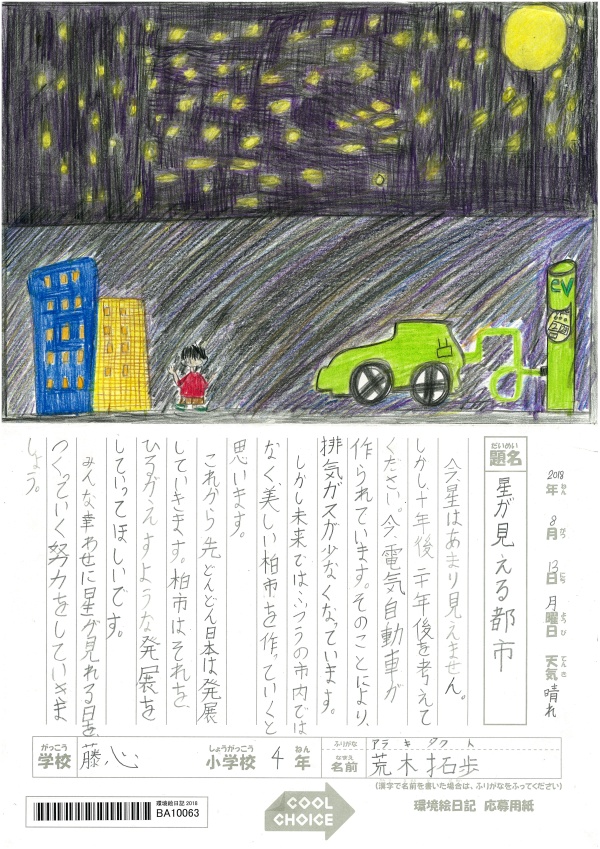 EV
2018年 8月 13日 月曜日 天気 晴れ
ねん がつ にち ようび てんき
だいめい
題名
星が見える都市
今、星はあまり見えません。
しかし、十年後、二十年後を考えて
ください。今、電気自動車が
作られています。そのことにより、
排気ガスが少なくなっています。
しかし未来では、ふつうの市内では
なく、美しい柏市を作っていくと
思います。
これから先、どんどん日本は発展
していきます。柏市は、それを、
ひるがえすような発展を
していってほしいです。
みんな幸わせに星が見れる日を、
つくっていく努力をしていきま
しょう。
がっこう
学校
藤心
しょうがっこう
小学校
4
ねん
年
ふりがな
アラキ タクト
なまえ
名前
荒木拓歩
(漢字で名前を書いた場合は、ふりがなをふってください)
環境絵日記 2018
BA10063
COOL
CHOICE
環境絵日記 応募用紙